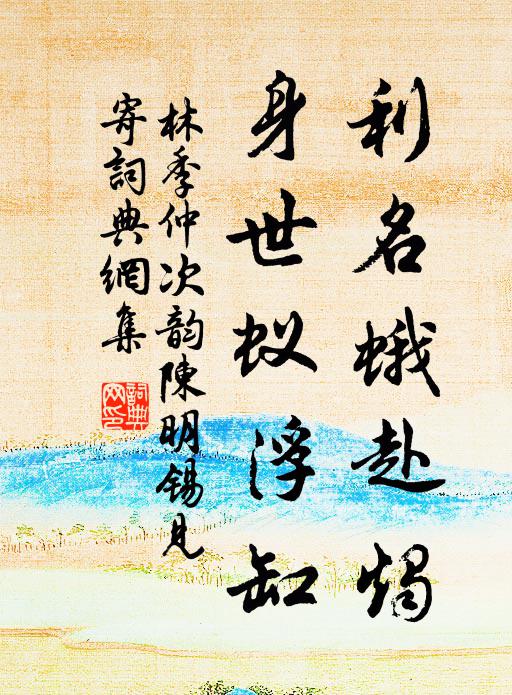 利名蛾赴燭
身世蚁浮缸
林季仲次韵陳明錫見
寄詞典網集
詞典
网印